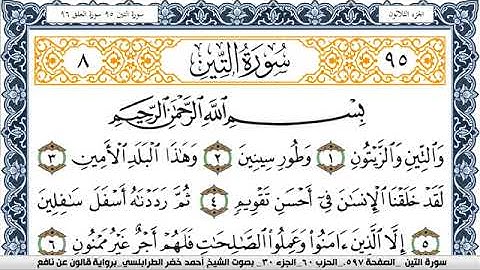 الجزء الثلاثون سورة التين ٩٥ سورة العلق ٩٦
٩٥ سُورَةُ التِّينِ ٨
بِسْمِ اللَّهِ الرَّحْمَٰنِ الرَّحِيمِ
وَالتِّينِ وَالزَّيْتُونِ ١ وَطُورِ سِينِينَ ٢ وَهَٰذَا الْبَلَدِ الْأَمِينِ ٣
لَقَدْ خَلَقْنَا الْإِنسَٰنَ فِي أَحْسَنِ تَقْوِيمٍ ٤ ثُمَّ رَدَدْنَٰهُ أَسْفَلَ سَٰفِلِينَ
٥ إِلَّا الَّذِينَ ءَامَنُوا وَعَمِلُوا الصَّٰلِحَٰتِ فَلَهُمْ أَجْرٌ غَيْرُ مَمْنُونٍ ٦
سورة التين _الصفحة ٥٩٧_ الحزب ٦٠_الجزء ٣٠_ بصوت الشيخ أحمد خضر الطرابلسي_ برواية قالون عن نافع